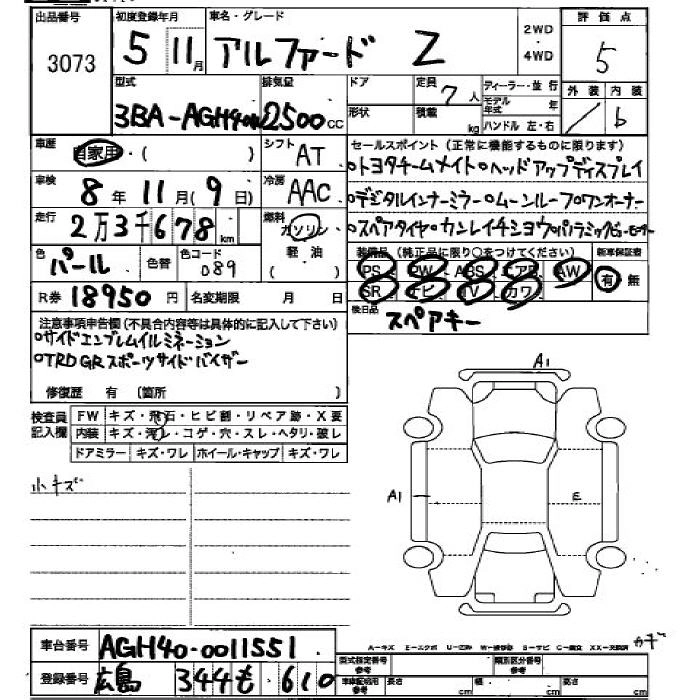 出品番号 初度登録年月 車名・グレード 2WD・4WD 評価点
3073 5 11月 アルファード Z 5
型式 排気量 ドア 定員 7人 ディーラー・並行 外装 内装
3BA-AGH40W 2500cc 形状 積載 kg モデル年式 年 ハンドル 左・右 b
車歴 自家用・( ) シフト AT セールスポイント (正常に機能するものに限ります)
○トヨタチームメイト○ヘッドアップディスプレイ
車検 8年11月(9日) 冷房 AAC
○デジタルインナーミラー○ムーンルーフ○ワンオーナー
走行 2万3千678km 燃料 ガソリン 軽油
○スペアタイヤ・カンレイチショウ○パノラミックビューモニター
装備品 (純正品に限り○をつけてください) 新車保証書
色 パール 色替 色コード 089
PS PW ABS エアB AW 有 無
R券 18950円 名変期限 月 日
SR ナビ TV カワ
後日品 スペアキー
注意事項申告欄(不具合内容等は具体的に記入して下さい)
○サイドエンブレムイルミネーション
○TRD GRスポーツサイドバイザー
修復歴 有 (箇所 )
検査員記入欄 FW キズ・飛石・ヒビ割・リペア跡・X要
内装 キズ・汚れ・コゲ・穴・スレ・ヘタリ・破レ
ドアミラー キズ・ワレ ホイール・キャップ キズ・ワレ
小キズ
A1
A1 E
カギ
車台番号 AGH40-0011551
A-キズ E-エクボ
登録番号 広島 344 も 610
型式指定番号 参考 類別区分番号 参考
車庫証明用 参考 長さ cm 幅 cm 高さ cm